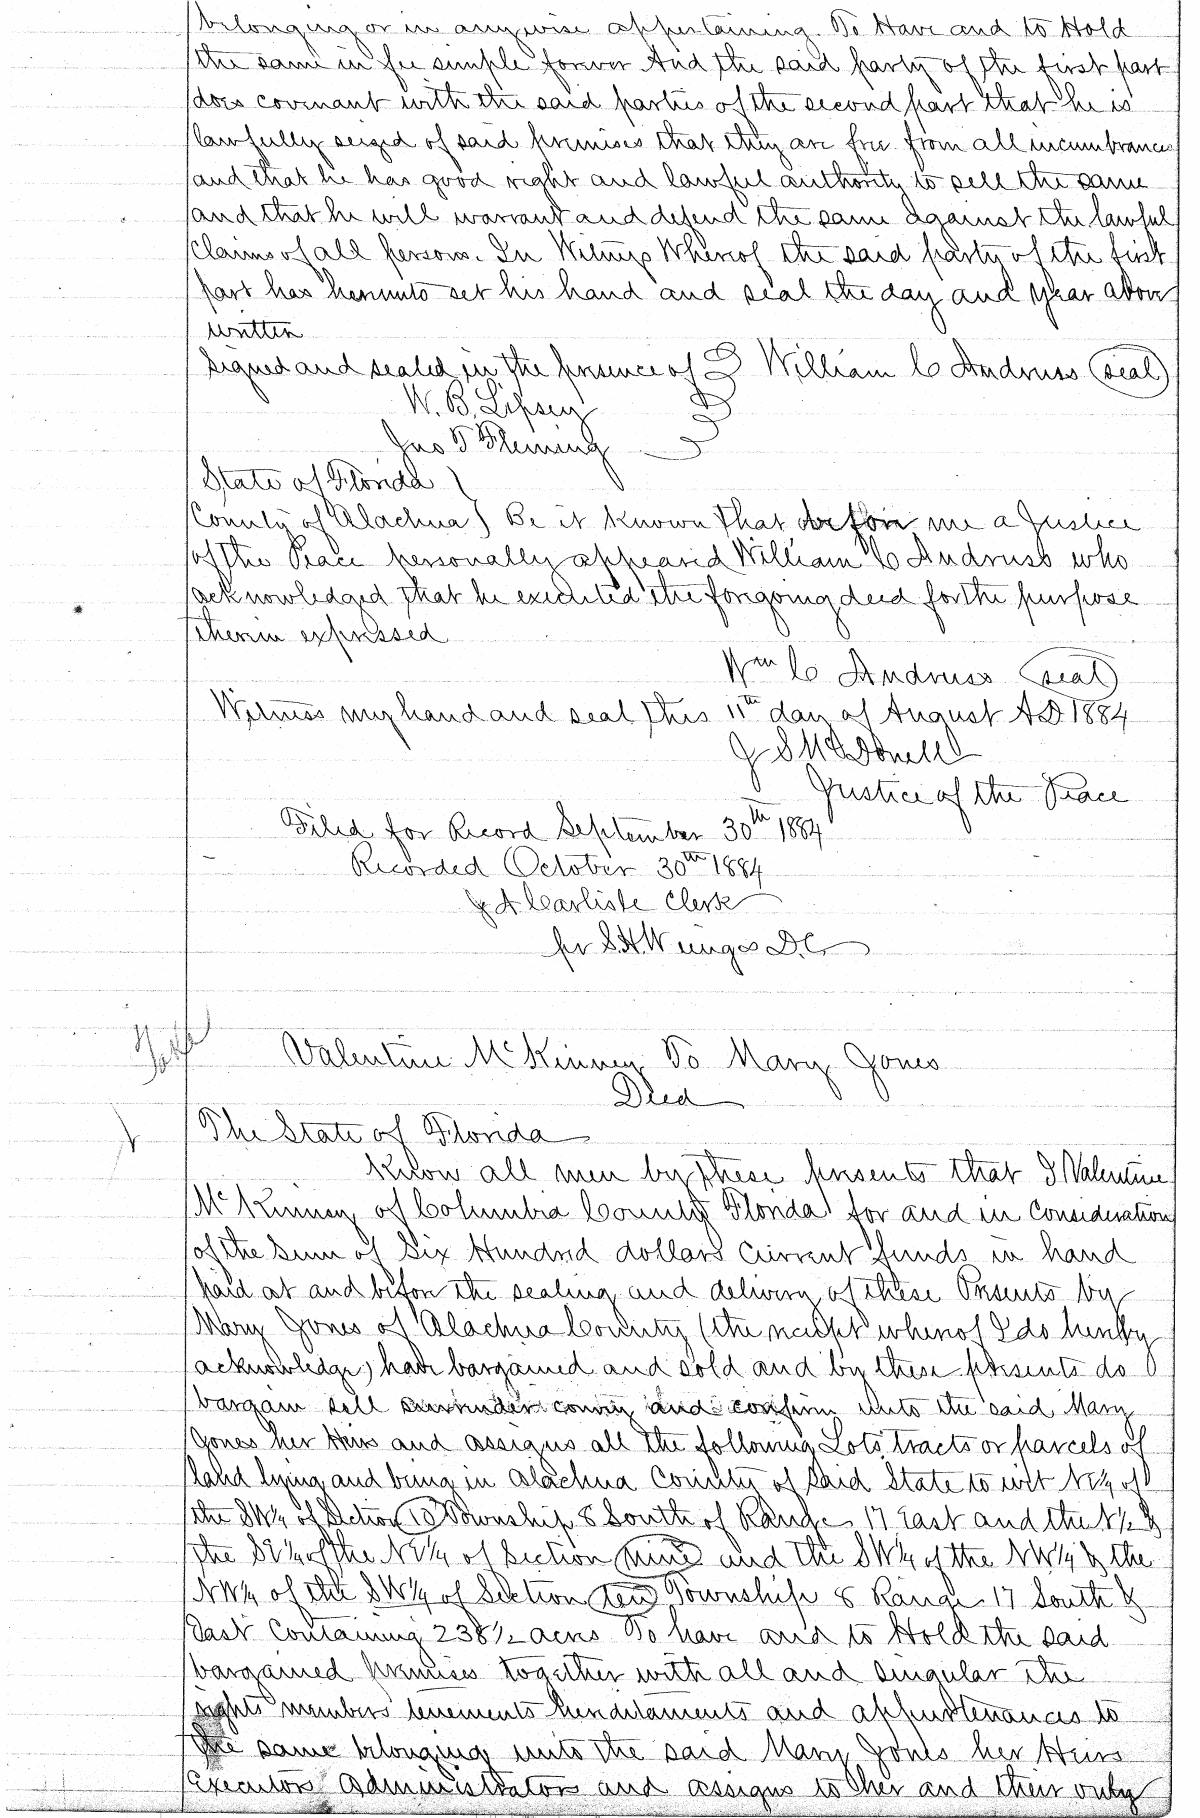 belonging or in anywise appertaining. To Have and to Hold
the same in fee simple forever And the said party of the first part
does covenant with the said parties of the second part that he is
lawfully seized of said premises that they are free from all incumbrances
and that he has good right and lawful authority to sell the same
and that he will warrant and defend the same against the lawful
claims of all persons. In Witness Whereof the said party of the first
part has hereunto set his hand and seal the day and year above
written
Signed and sealed in the presence of William C Andruss (seal)
W. B. Lipsey
Jno T Fleming
State of Florida )
County of Alachua ) Be it Known that before me a Justice
of the Peace personally appeared William C Andruss who
acknowledged that he executed the foregoing deed for the purpose
therein expressed
Wm C Andruss (seal)
Witness my hand and seal this 11th day of August A.D. 1884
J S McDonell
Justice of the Peace
Filed for Record September 30th 1884
Recorded October 30th 1884
J A Carlisle Clerk
pr S.H. D.C.
Valentine McKinney To Mary Jones
Deed
The State of Florida
Know all men by these presents that I Valentine
McKinney of Columbia County Florida for and in Consideration
of the Sum of Six Hundred dollars current funds in hand
paid at and before the sealing and delivery of these Presents by
Mary Jones of Alachua County (the receipt whereof I do hereby
acknowledge) have bargained and sold and by these presents do
bargain sell surrender convey and confirm unto the said Mary
Jones her Heirs and assigns all the following Lots tracts or parcels of
land lying and being in Alachua County of said State to wit NE¼ of
the SW¼ of Section 10 Township 8 South of Range 17 East and the N½ &
the SE¼ of the NE¼ of Section nine and the SW¼ of the NW¼ & the
NW¼ of the SW¼ of Section ten Township 8 Range 17 South &
East Containing 238½ acres To have and to Hold the said
bargained premises together with all and singular the
rights members tenements hereditaments and appurtenances to
the same belonging unto the said Mary Jones her Heirs
Executors Administrators and assigns to her and their only